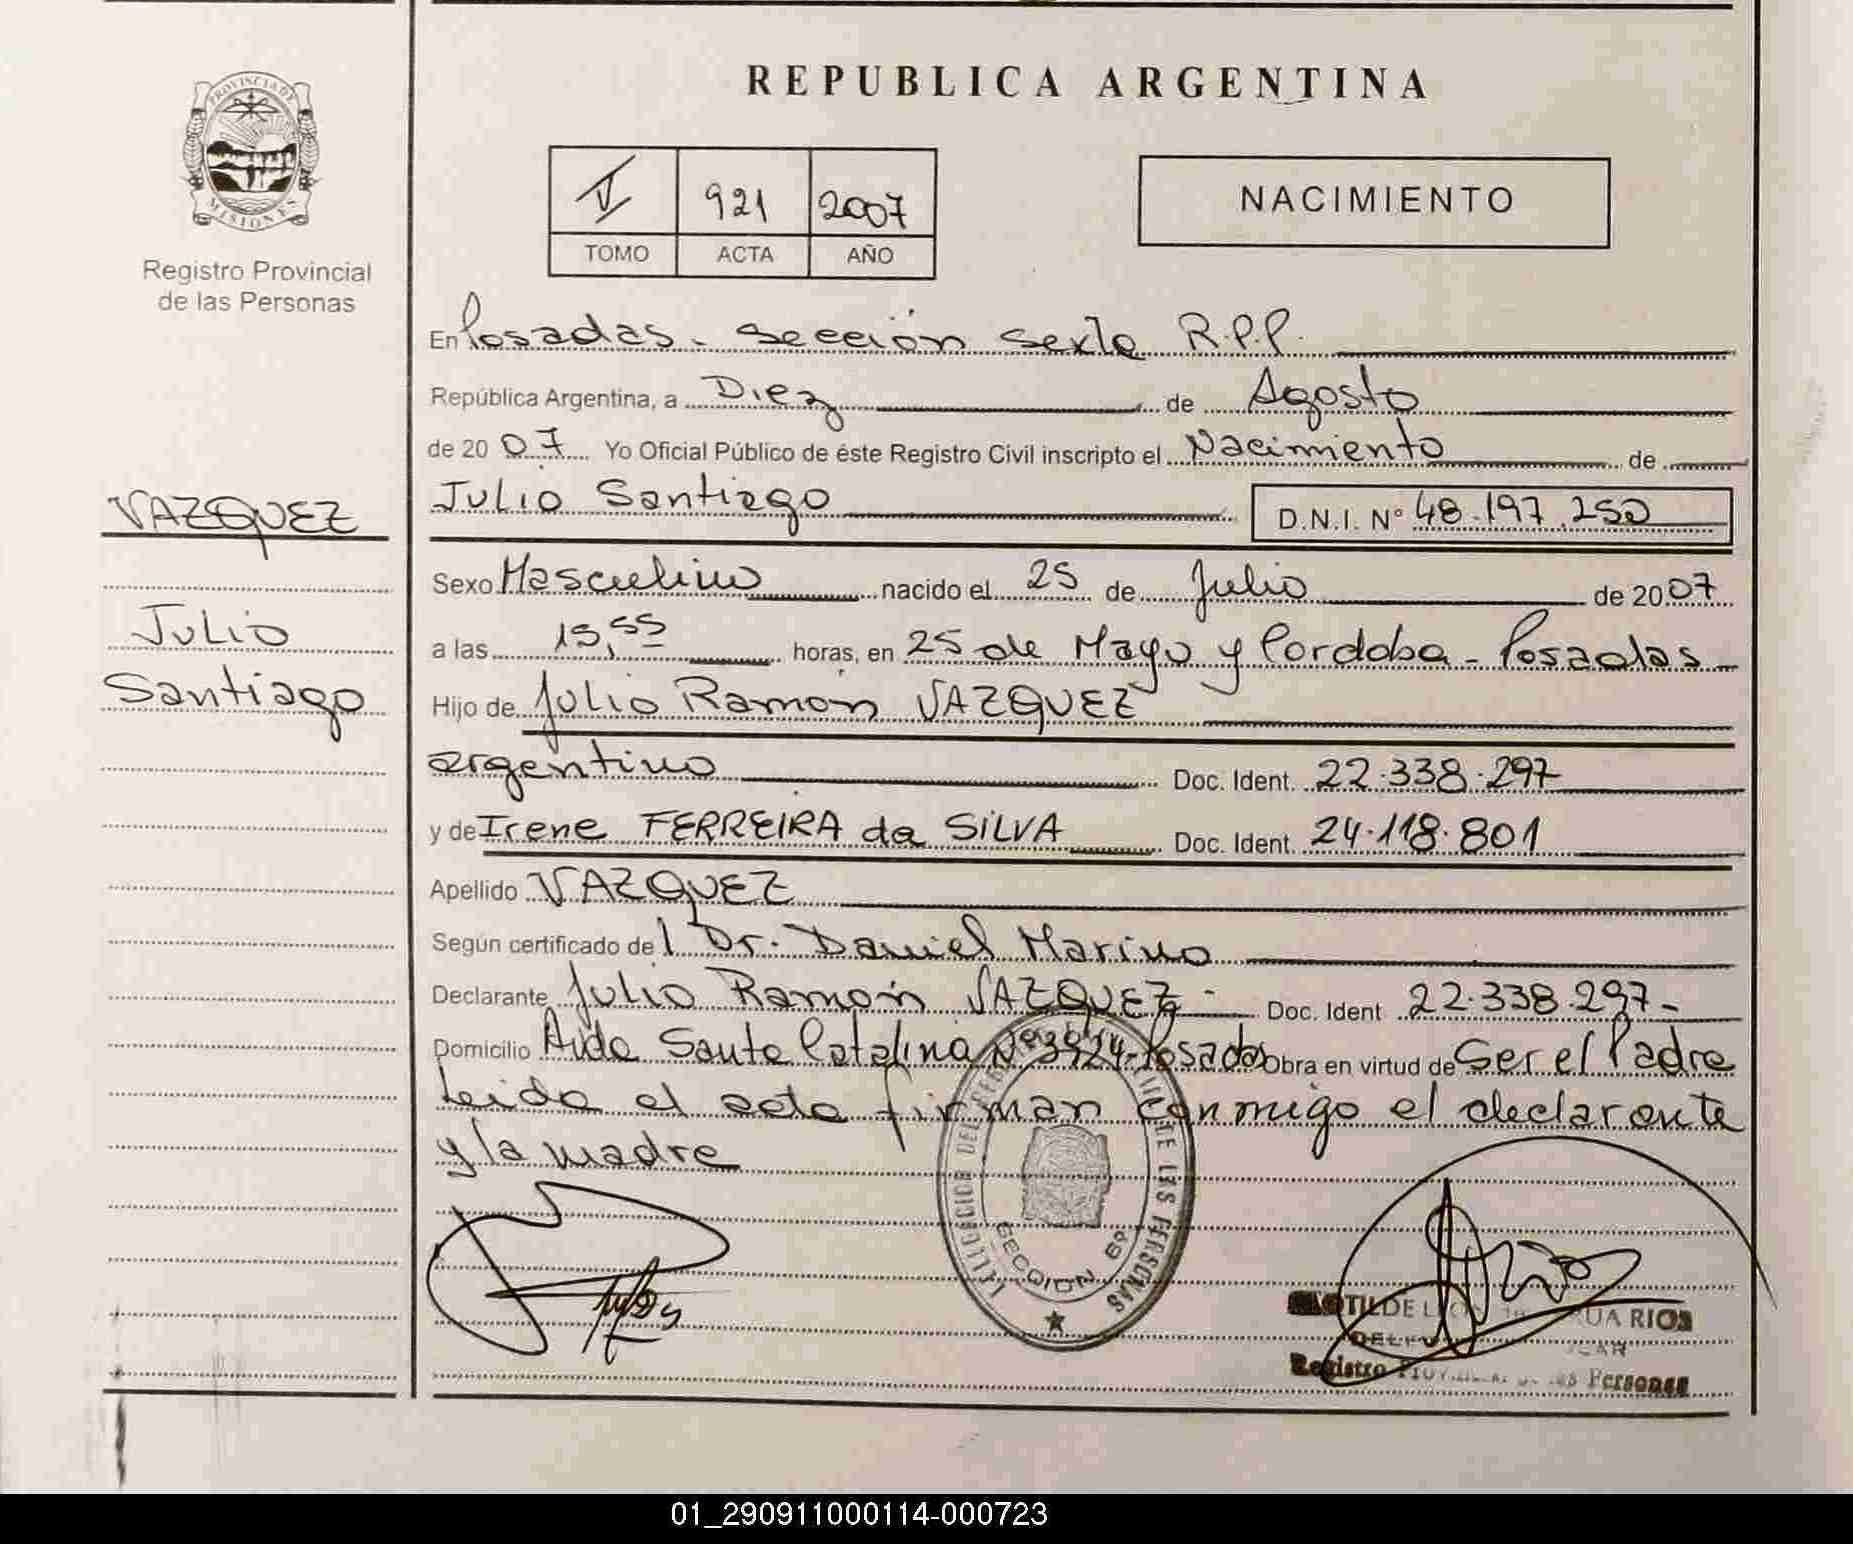 PROVINCIA DE
MISIONES
Registro Provincial
de las Personas
VAZQUEZ
Julio
Santiago
REPUBLICA ARGENTINA
V 921 2007
TOMO ACTA AÑO
NACIMIENTO
En Posadas - Sección Sexta R.P.P.
República Argentina, a Diez de Agosto
de 2007 Yo Oficial Público de éste Registro Civil inscripto el Nacimiento de
Julio Santiago D.N.I. N° 48.197.250
Sexo Masculino nacido el 25 de Julio de 2007
a las 15,55 horas, en 25 de Mayo y Cordoba - Posadas
Hijo de Julio Ramón VAZQUEZ
argentino Doc. Ident. 22.338.297
y de Irene FERREIRA da SILVA Doc. Ident. 24.118.801
Apellido VAZQUEZ
Según certificado del Dr. Daniel Marino
Declarante Julio Ramón VAZQUEZ - Doc. Ident 22.338.297-
Domicilio Avda Santa Catalina N° 3924-Posadas Obra en virtud de Ser el Padre
Leida el acta firman conmigo el declarante
y la madre
DE LAS PERSONAS
SECCION 6ª
RIOS
Registro Personas
01_290911000114-000723